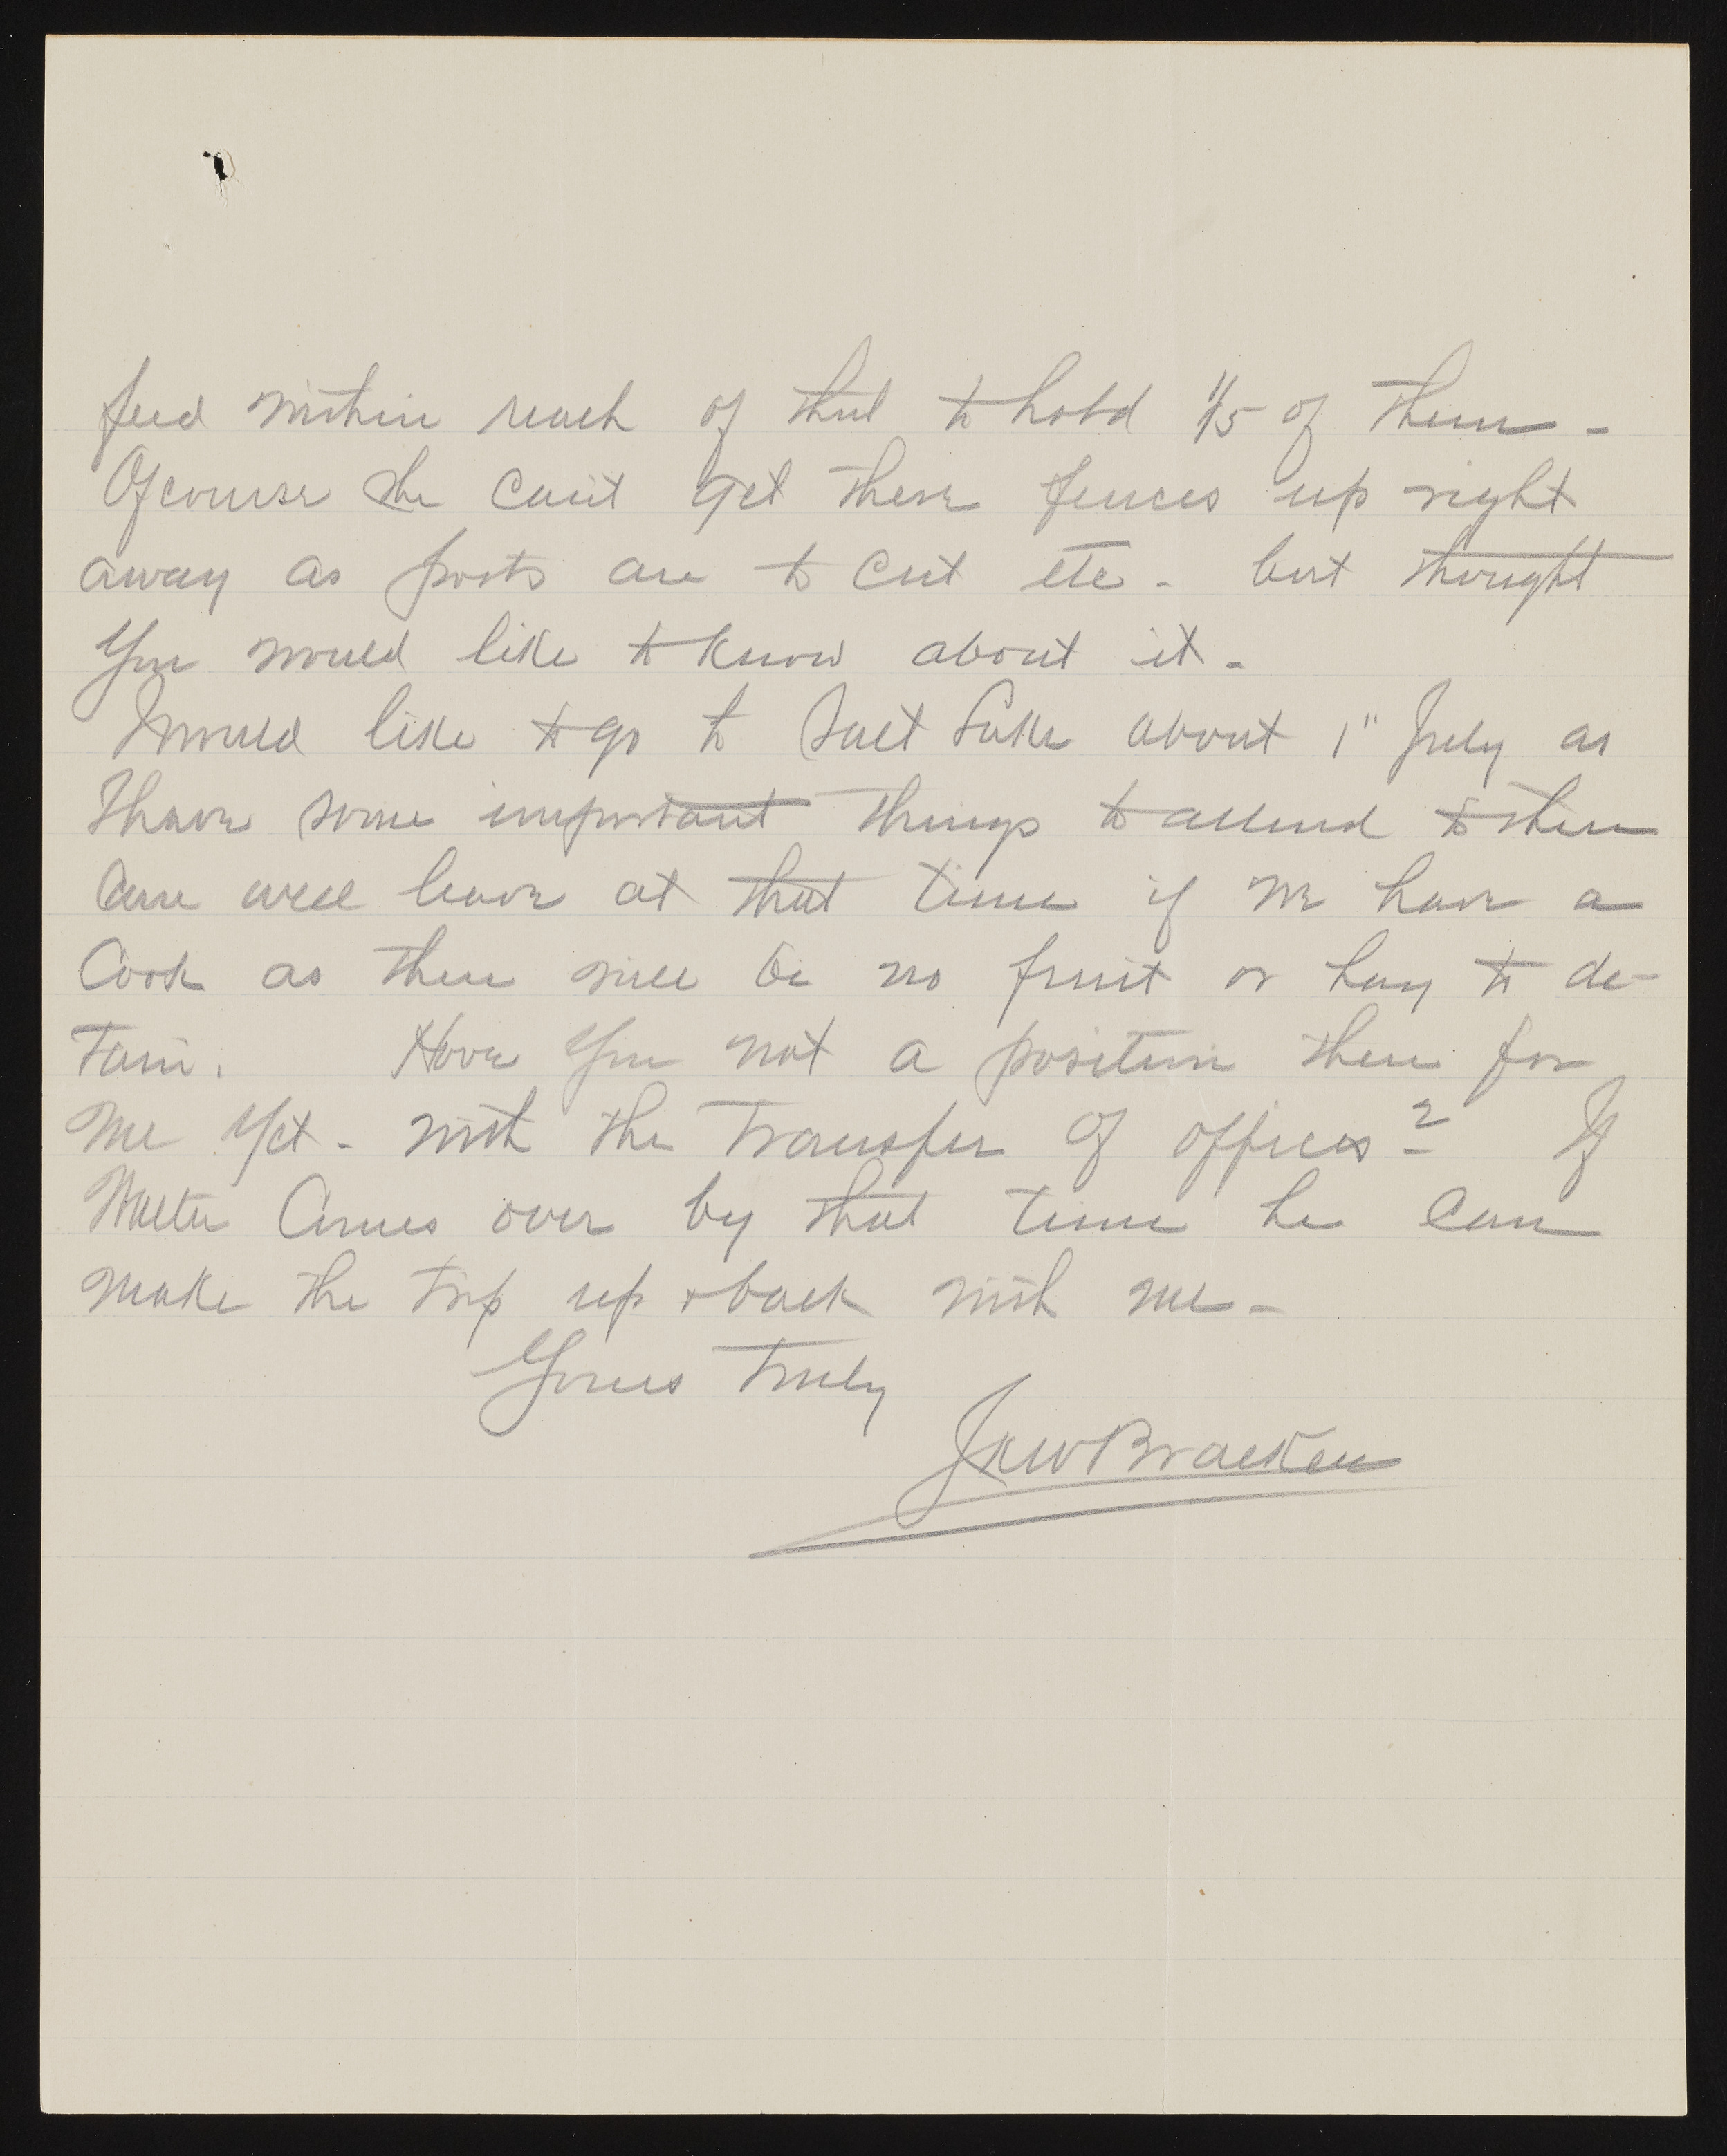 feed within reach of that to hold 1/5 of them -
Of course she can't get these fences up right
away as posts are to cut etc - but thought
You would like to know about it -
I would like to go to Salt Lake about 1" July as
I have some important things to attend to there
Can well leave at that time if we have a
Cook as there will be no fruit or hay to de-
tain. Have You not a position there for
me yet - with the transfer of offices? If
Walter Comes over by that time he can
make the trip up & back with me -
Yours truly
JKW Bracken